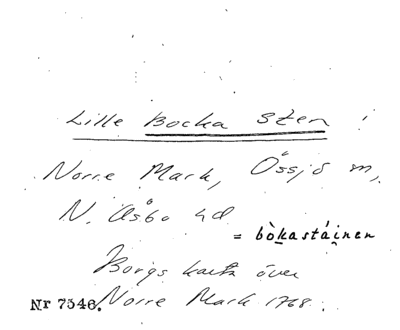 Lille Bocka Sten !
Norre Mark, Össjö sn,
N. Åsbo hd
= bòkastáinen
Borgs karta över
Nr 7546. Norre Mark 1768.